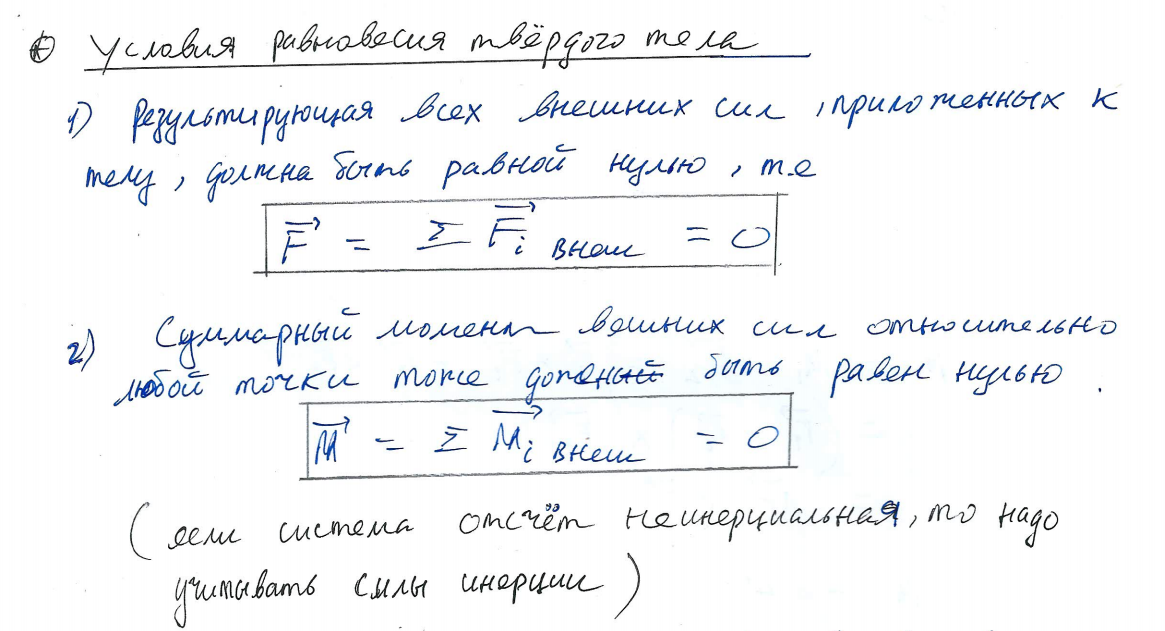 Условия равновесия твёрдого тела
1) Результирующая всех внешних сил, приложенных к
телу, должна быть равной нулю, т.е
F⃗ = Σ F⃗i внеш = 0
2) Суммарный момент вешних сил относительно
любой точки тоже быть равен нулью.
M⃗ = Σ M⃗i внеш = 0
(если система отсчёт неинерциальная, то надо
учитывать силы инерции)